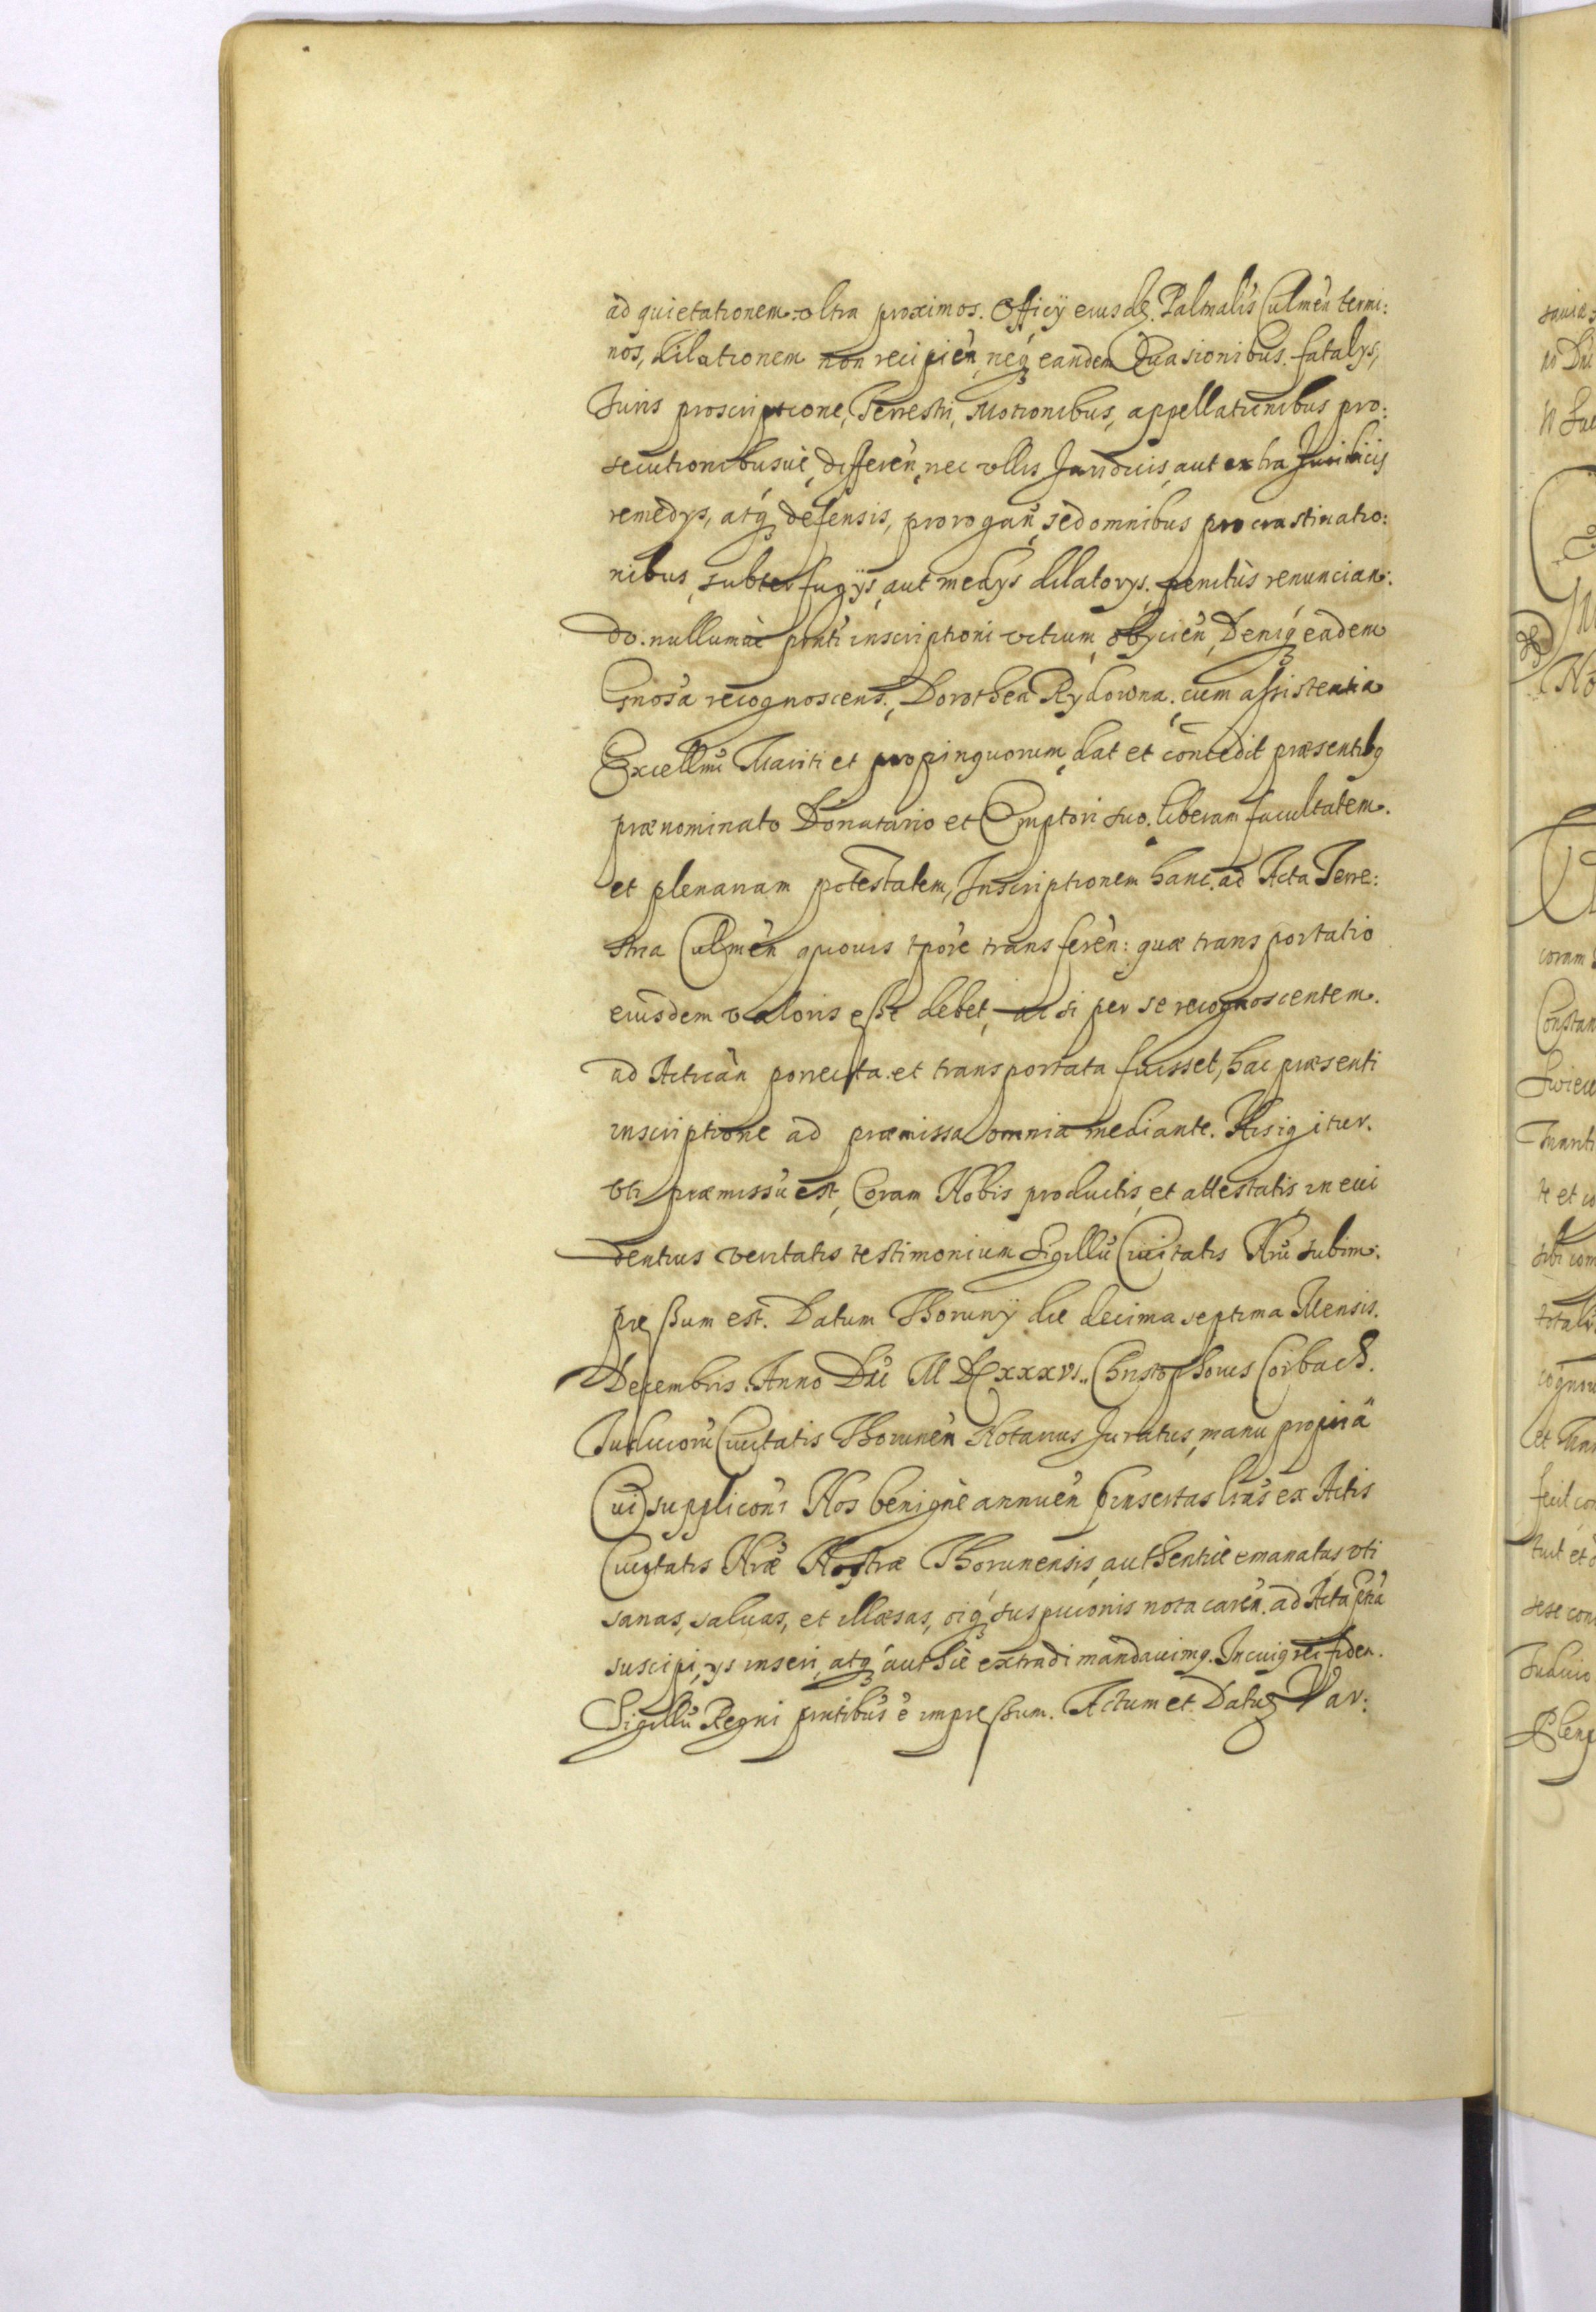 ad quietationem vltra proximos Officÿ eiusdẽ Palmalis Culmeñ termi:
nos, dilationem non recipieñ neq̃ eandem Euasionibus fatalÿs,
Juris proscriptione, Terrestri, Motionibus, appellationibus pro:
secutionibusuè, differeñ, nec vllis Juridicis, aut extra Juridicis
remedÿs, atq̃ defensis, prorogañ, sed omnibus procrastinatio:
nibus, subterfugÿs, aut medÿs dilatorÿs, penitùs renuncian:
do. nullumq̃ pnti inscriptioni vitium obÿcieñ, Deniq̃ eadem
Gnosa recognoscens, Dorothea Rydowna, cum assistentia
Excellmi Mariti et propinquorum, dat et concedit præsentibq
prænominato Donatario et Emptori suo liberam facultatem
et plenariam potestatem, Inscriptionem hanc ad Acta Terre:
stria Culmeñ quouis tpore transfereñ: quæ transportatio
eiusdem valoris esse debet, ac si per se recognoscentem
ad Acticañ porrecta et transportata fuisset, hac præsenti
inscriptione ad præmissa omnia mediante. His igitur
vti præmissũ est, Coram Nobis productis, et attestatis, in eui
dentius veritatis testimonium Sigillũ Ciuitatis Nrũ subim:
pressum est. Datum Thorunÿ die decima septima Mensis
Decembris Anno Dñi M DCxxxvi. Christophorus Corbach
Judiciorũ Ciuitatis Thoruneñ Notarius Juratus, manu propria
Cui supplicoñi Nos benignè annueñ pinsertas lras ex Actis
Ciuitatis Nræ Thorunensis, authenticè emanatas, vti
sanas, saluas, et illæsas, oiq̃ suspicionis nota careñ ad Acta pñtia
suscipi, ÿs inseri, atq̃ authcè extradi mandauimq. In cuiq rei fidem
Sigillũ Regni pntibus ẽ impressum. Actum et Datũ Var: